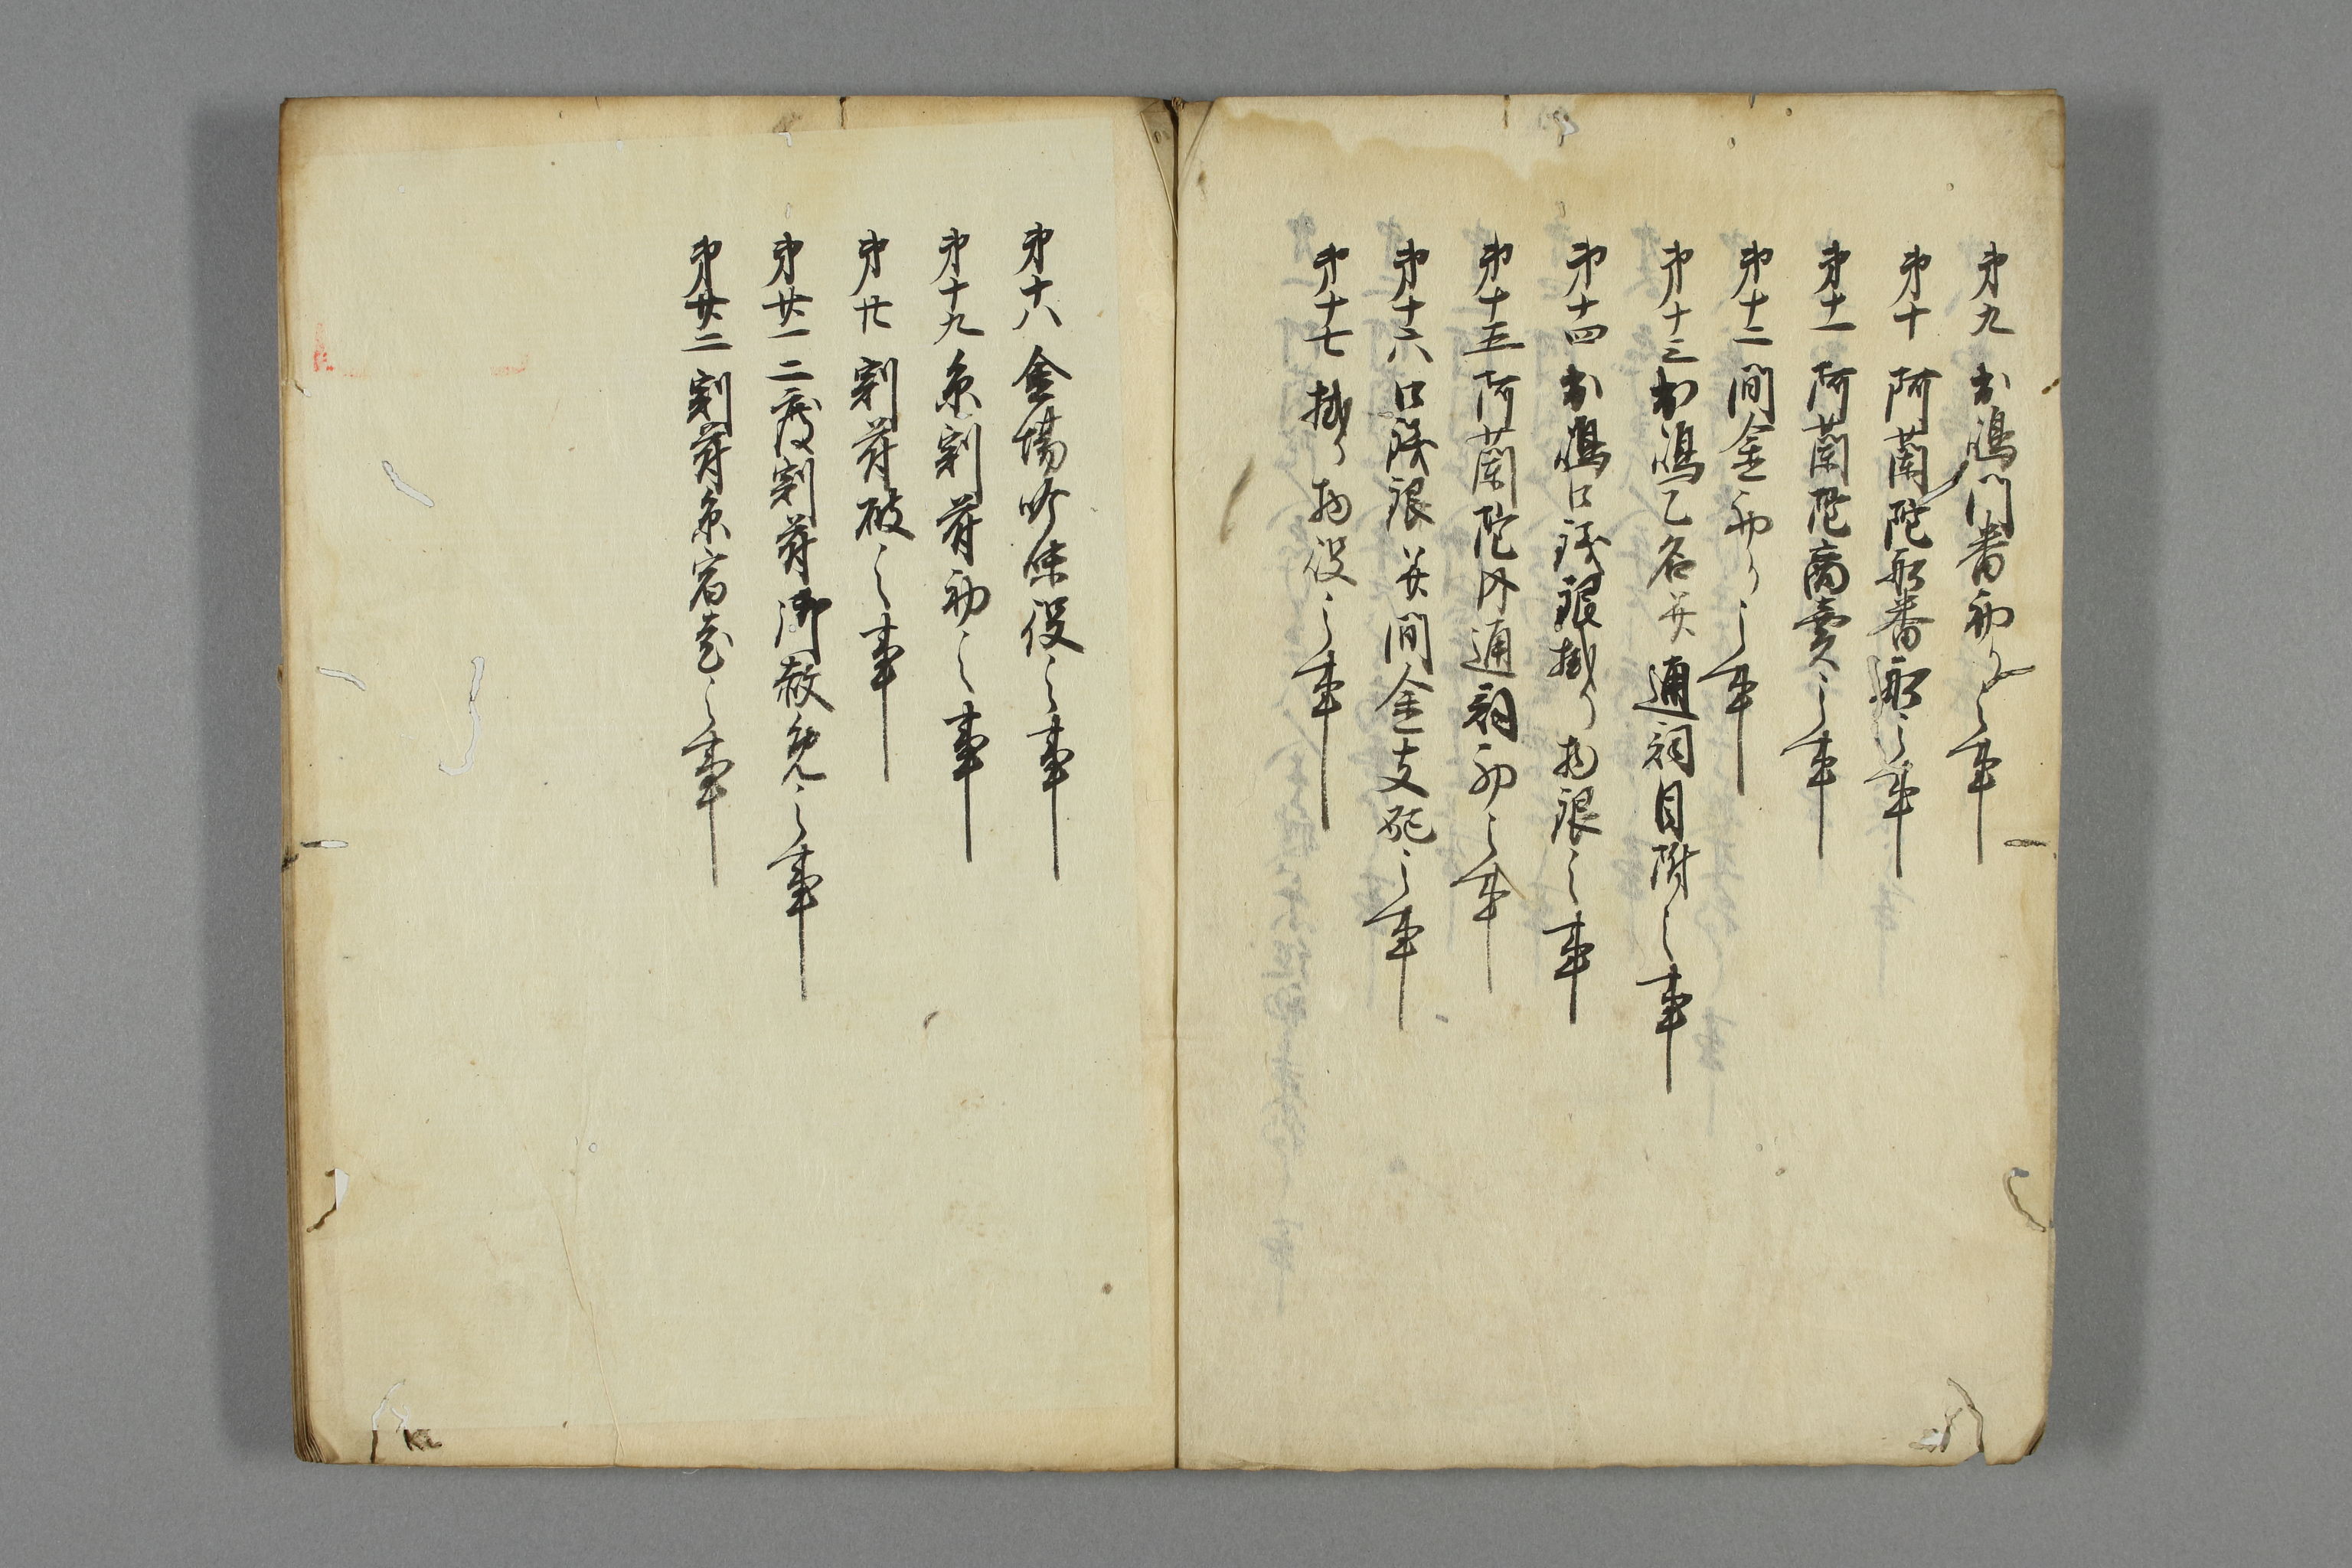 第九 出嶋門番初り之事
第十 阿蘭陀船番船之事
第十一 阿蘭陀商賣之事
第十二 間金初り之事
第十三 出嶋乙名并通詞目附之事
第十四 出嶋口錢銀掛り物銀之事
第十五 阿蘭陀内通詞初之事
第十六 口錢銀并間金支配之事
第十七 掛り物役之事
第十八 金場吟味役之事
第十九 糸割符初之事
第廿 割符破之事
第廿一 二度割符御赦免之事
第廿二 割符糸宿老之事